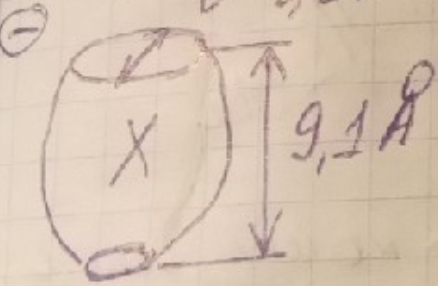 X
9,1 Å